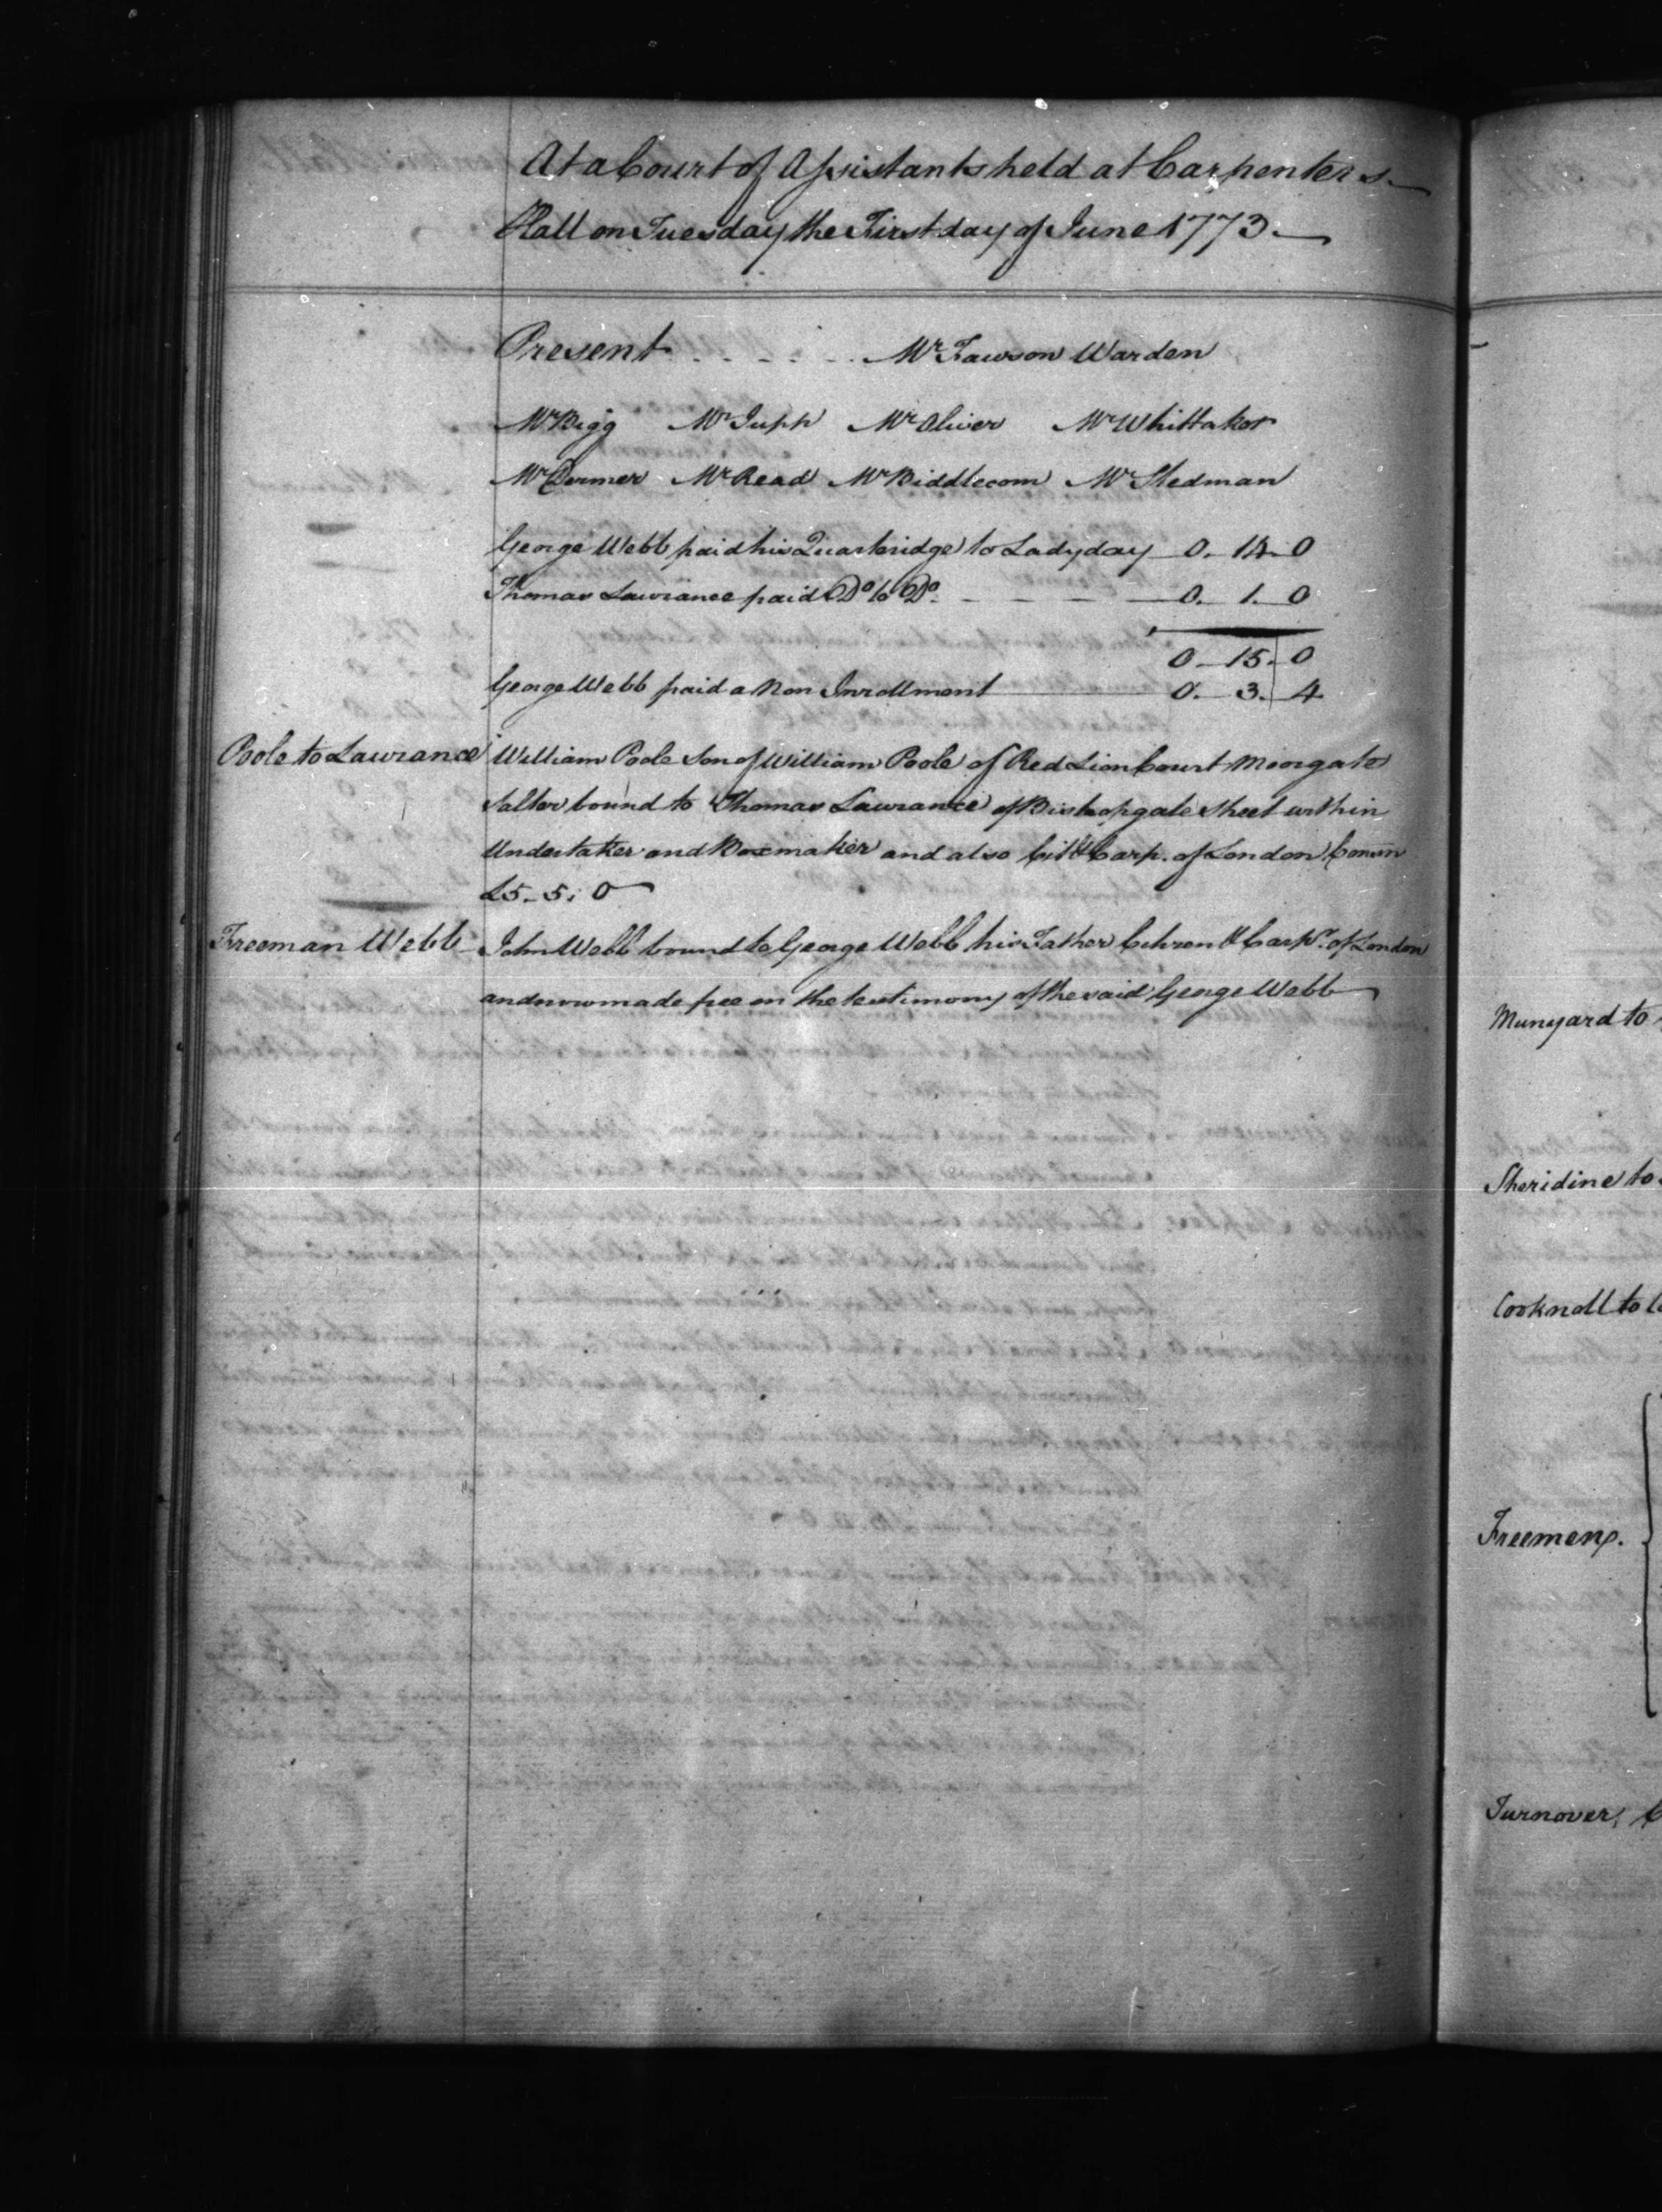 At a Court of Assistants held at Carpenters
Hall on Tuesday the First day of June 1773.
Present . . . . . . Mr Fawson Warden
Mr Bigg Mr Jupp Mr Oliver Mr Whittaker
Mr Dermer Mr Read Mr Biddlecom Mr Stedman
George Webb paid his Quarteridge to Ladyday 0. 14. 0
Thomas Lawrance paid Do to Do. 0. 1. 0
0. 15. 0
George Webb paid a Non Inrollment 0. 3. 4
Poole to Lawrance William Poole Son of William Poole of Red Lion Court Moorgate
Salter bound to Thomas Lawrance of Bishopgate Street within
Undertaker and Boxmaker and also Cit & Carp. of London Conson
£5. 5. 0
Freeman Webb John Webb bound to George Webb his Father Citizen & Carpr. of London
and now made free on the testimony of the said George Webb
Munyard to
Sheridine to
Cooknell to
Freemen.
Turnover,